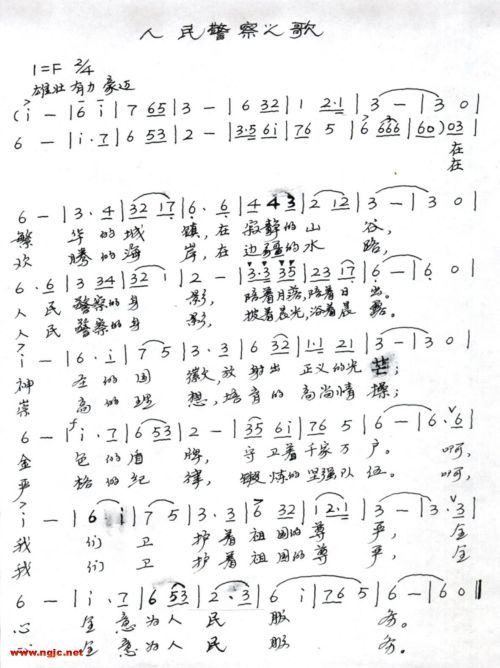 人民警察之歌
1=F 2/4
雄壮 有力 豪迈
(i - | 6 i | 7 65 | 3 - | 6 32 | 1 2·1 | 3 - | 3 0 |
6 - | i·7 | 6 53 | 2 - | 3·5 6i | 76 5 | 6 666 | 60) 03 |
在
在
6 - | 3·4 | 32 17 | 6·6 | 4 43 | 2 12 | 3 - | 3 0 |
繁 华的城 镇,在 寂静的山 谷,
欢 腾的海 岸,在 边疆的水 路,
6·6 | 3 34 | 32 1 | 2 - | 3·3 35 | 23 17 | 6 - | 6 0 |
人民 警察的身 影, 陪着月落,陪着日 出。
人民 警察的身 影, 披着晨光,沿着晨 露。
i - | 6·i | 7 5 | 3·3 | 6 32 | 1·1 21 | 3 - | 3 0 |
神 圣的国 徽火,放射出 正义的光 芒;
崇 高的理 想,培育的 高尚情 操;
6 - | i·7 | 6 53 | 2 - | 35 6i | 76 5 | 6 - | 6·6 |
金 色的盾 牌, 守卫着千家万 户。 啊,
严 格的纪 律, 锻炼的坚强队 伍。 啊,
i - | 6 i | 7 5 | 3·3 | 6 32 | 1 2·1 | 3 - | 3·3 |
我 们 卫 护着 祖国的尊 严, 全
我 们 卫 护着 祖国的尊 严, 全
6 - | i·7 | 6 53 | 2·3 | 6 i | 76 5 | 6 - | 6 0 ‖
心 全 意为人 民 服 务。
心 全 意为人 民 服 务。
www.ngjc.net